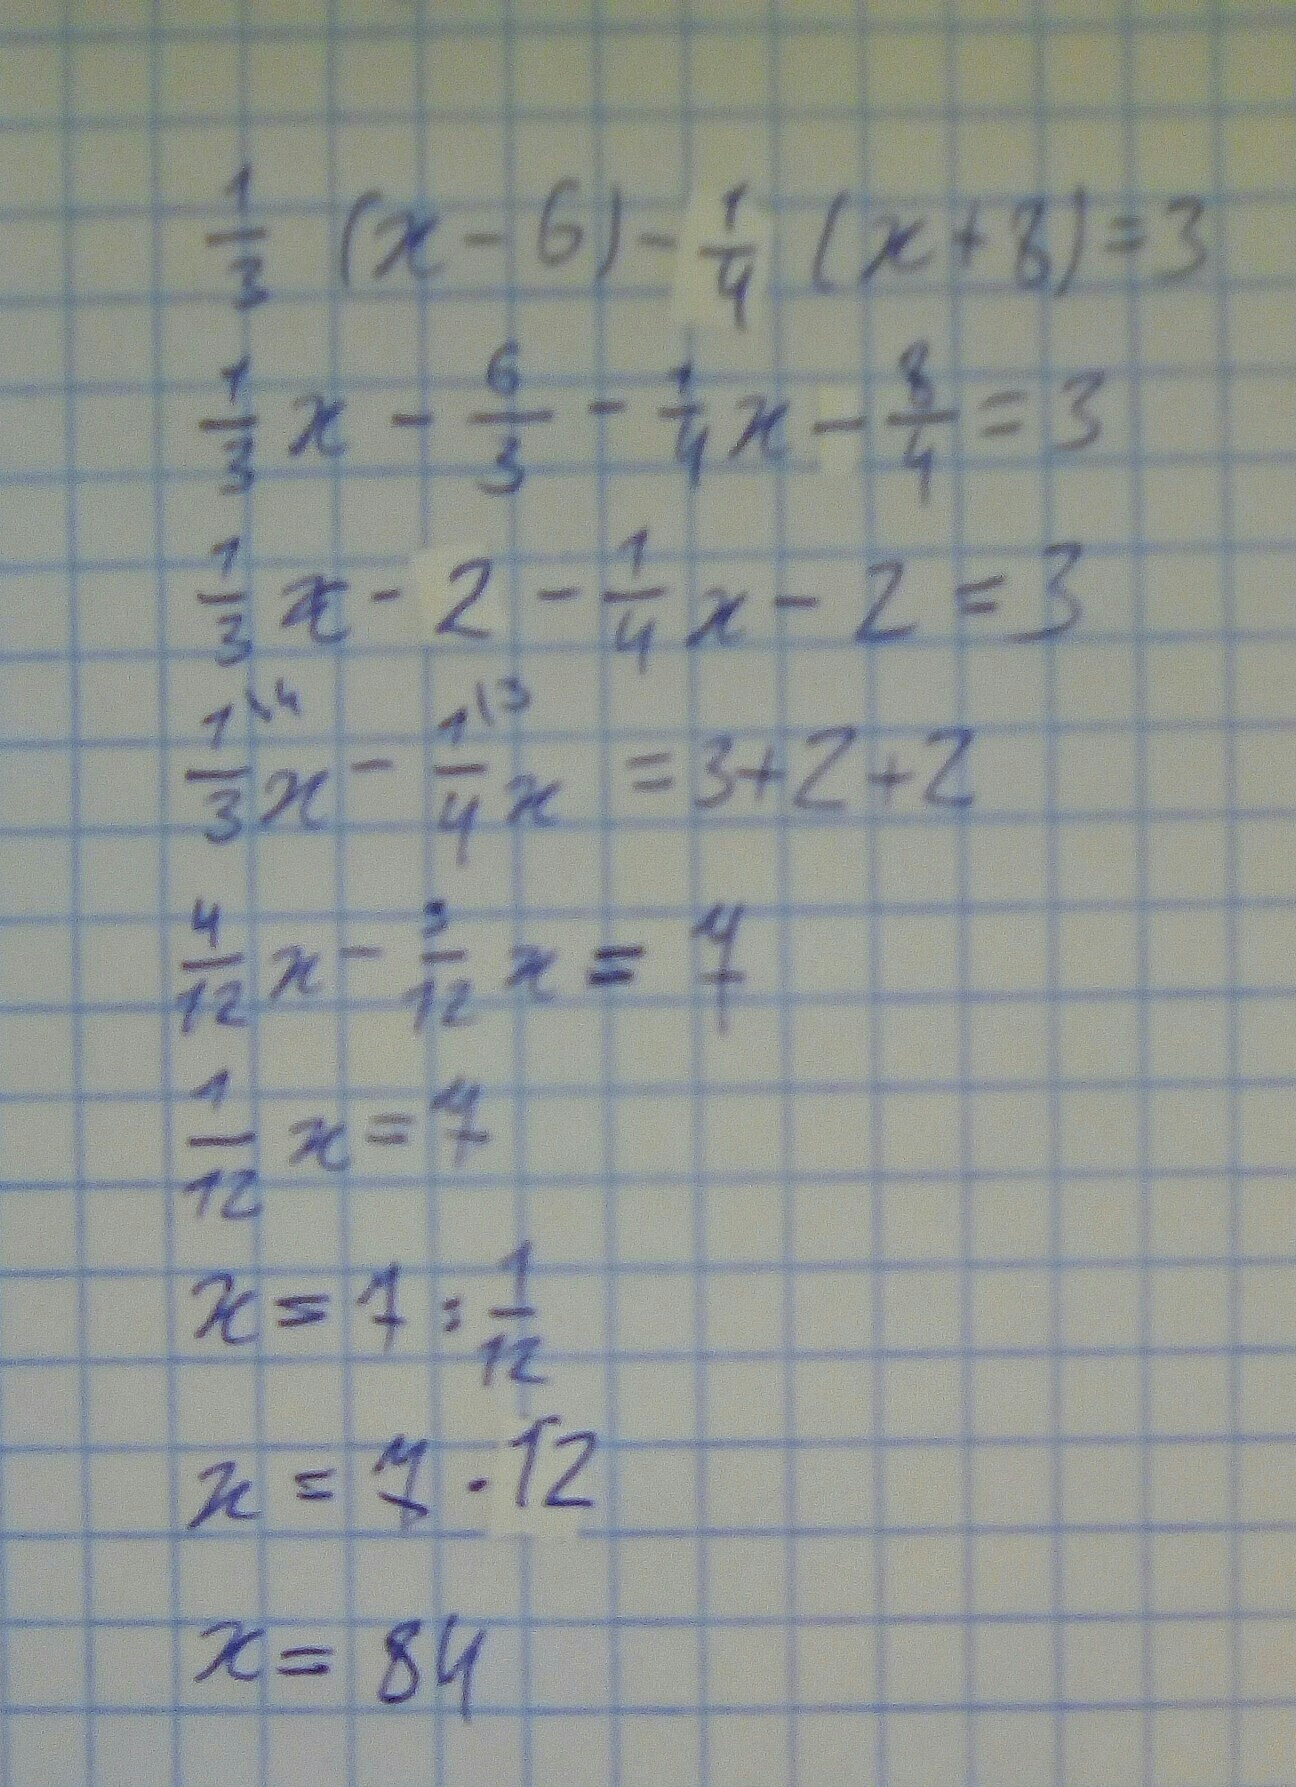 1/3 (x - 6) - 1/4 (x + 8) = 3
1/3 x - 6/3 - 1/4 x - 8/4 = 3
1/3 x - 2 - 1/4 x - 2 = 3
1\4/3 x - 1\3/4 x = 3 + 2 + 2
4/12 x - 3/12 x = 7
1/12 x = 7
x = 7 : 1/12
x = 7 · 12
x = 84